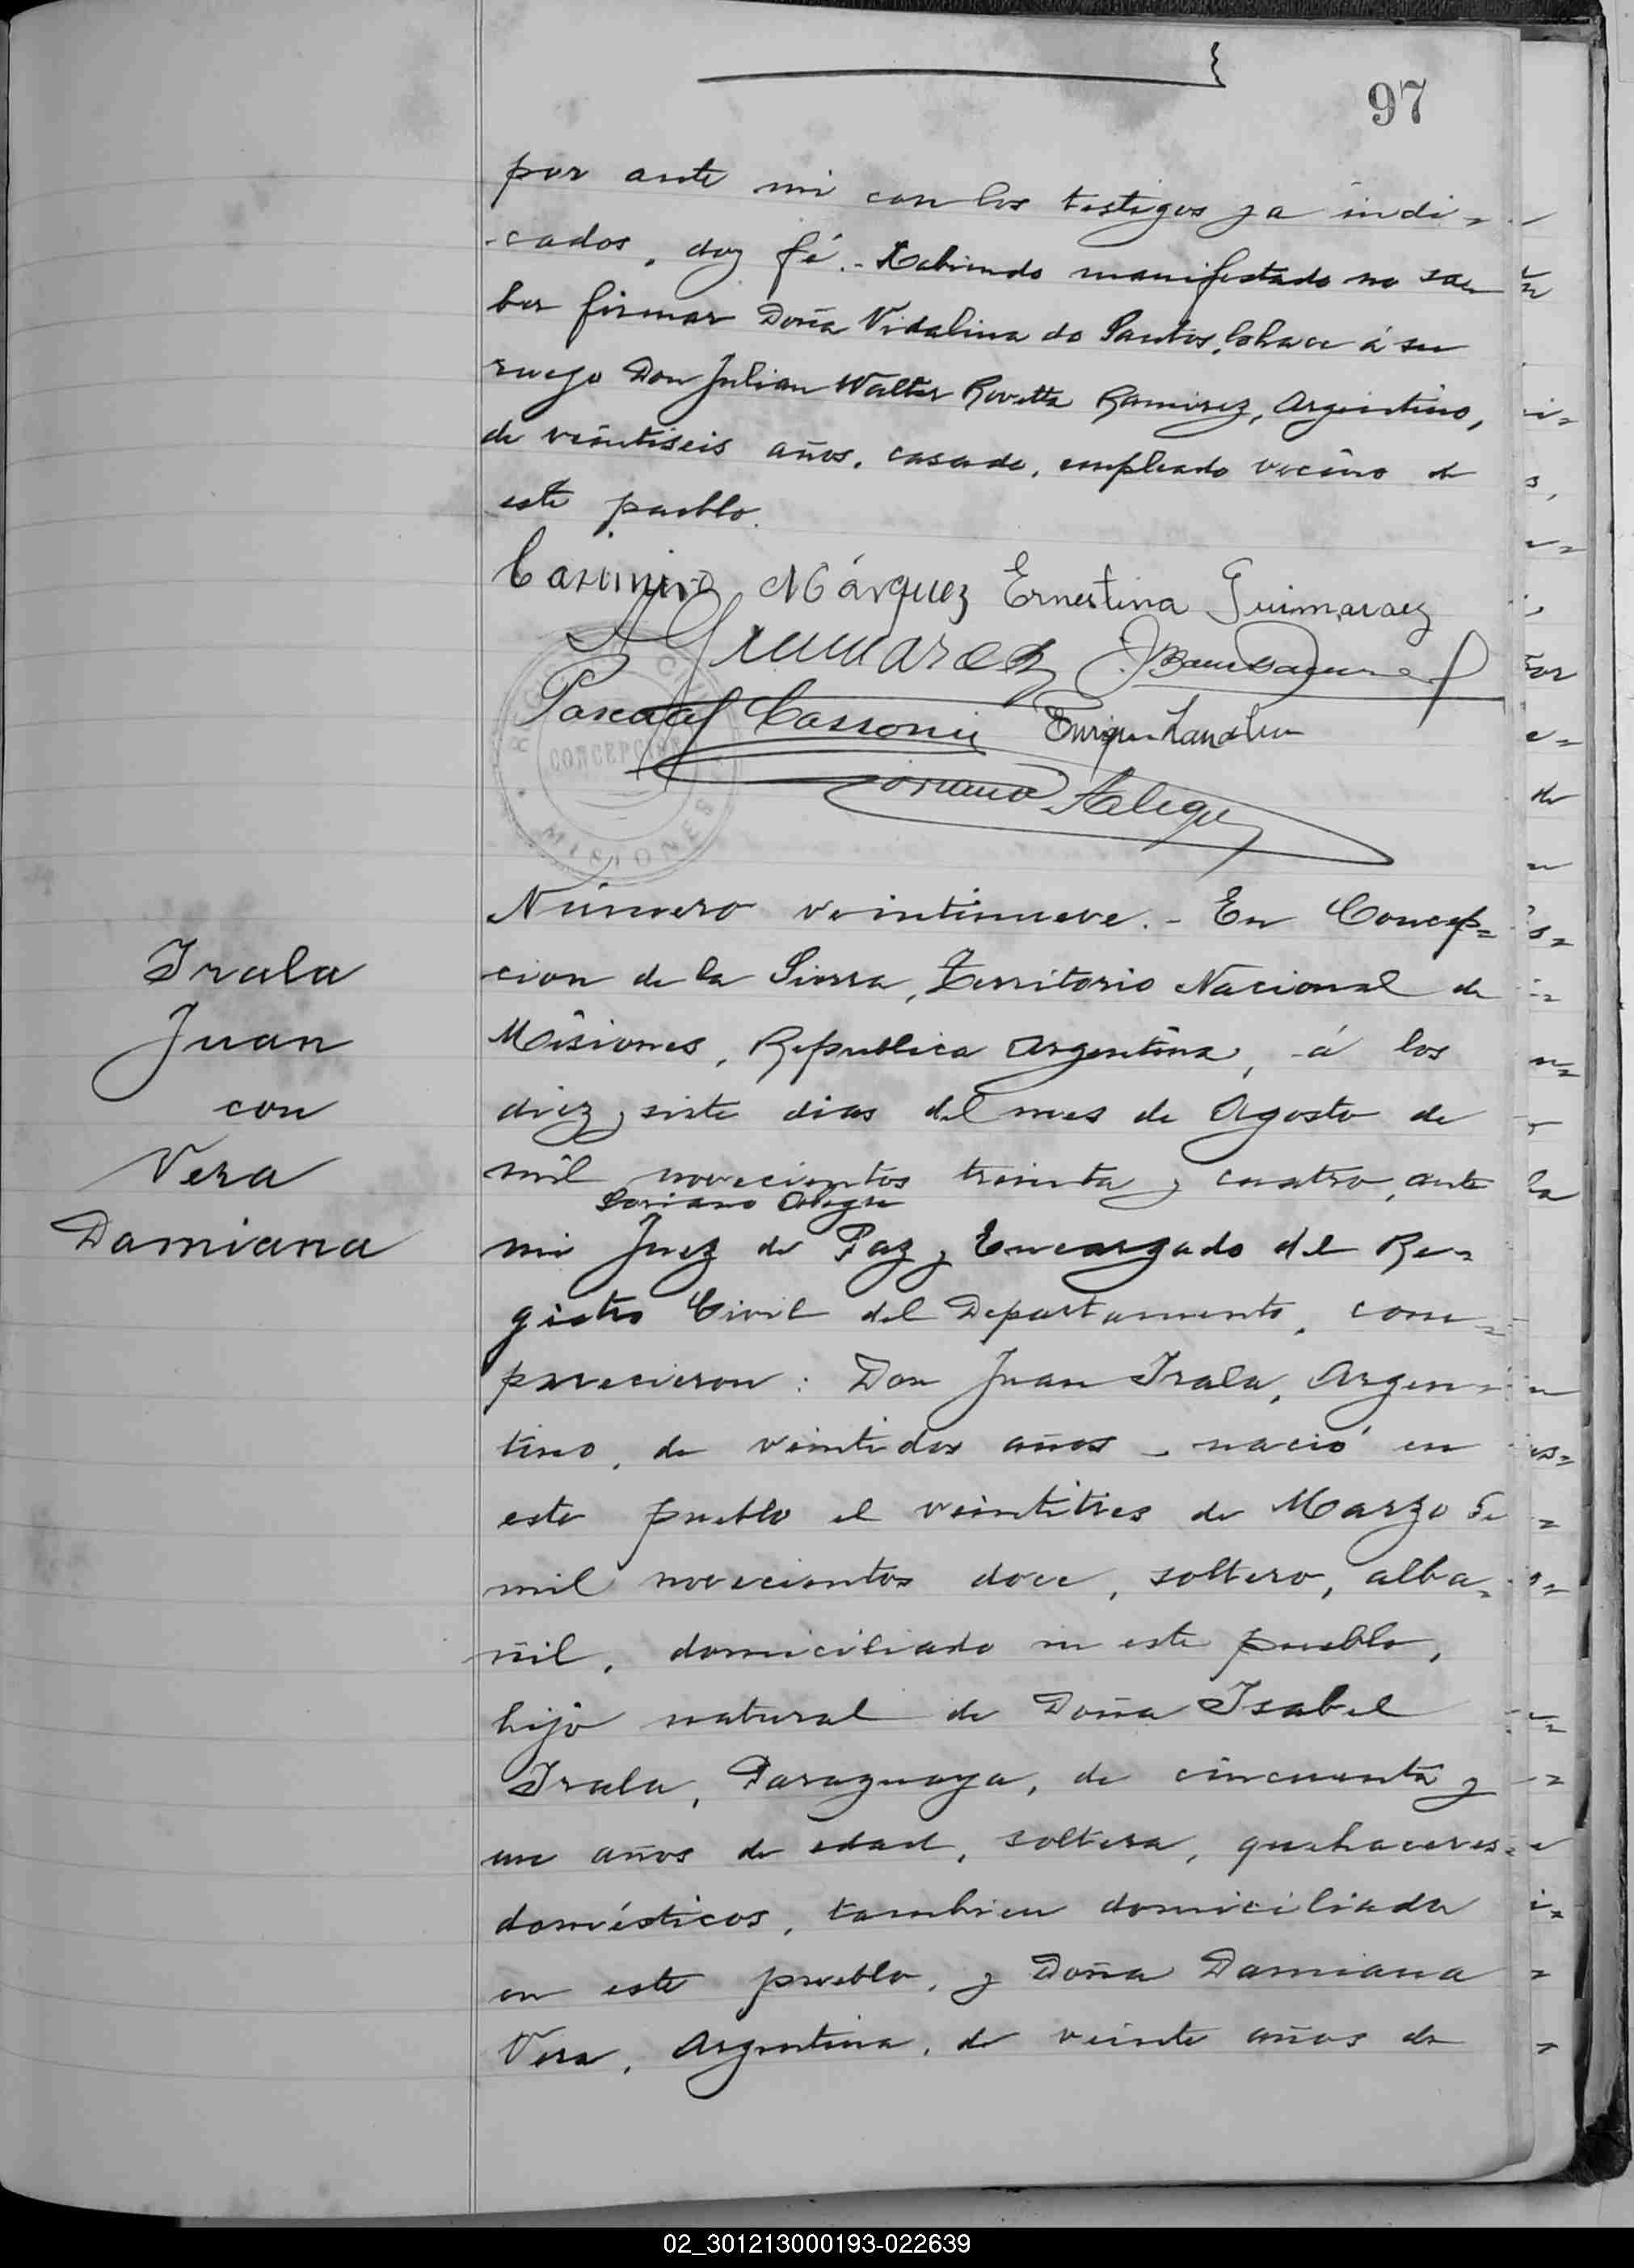 97
por ante mi con los testigos ya indi=
=cados, doy fé.- Habiendo manifestado no sa=
ber firmar Doña Vidalina do Santos, lo hace á su
ruego Don Julian Walter Rovetta Ramirez, Argentino,
de veintiseis años, casado, empleado vecino de
este pueblo.
Casimiro Márquez Ernestina Guimaraez
A Guimaraez
Pascual Cassoni Enrique
Soriano Alegre
REGISTRO CIVIL
CONCEPCION
MISIONES
Irala
Juan
con
Vera
Damiana
Número veintinueve.- En Concep=
cion de la Sierra, Territorio Nacional de
Misiones, Republica Argentina, á los
diez y siete dias del mes de Agosto de
mil novecientos treinta y cuatro, ante
Soriano Alegre
mi Juez de Paz y Encargado del Re=
gistro Civil del Departamento, com=
parecieron: Don Juan Irala, Argen=
tino, de veintidos años, nació en
este pueblo el veintitres de Marzo de
mil novecientos doce, soltero, alba=
ñil, domiciliado en este pueblo,
hijo natural de Doña Isabel
Irala, Paraguaya, de cincuenta y
un años de edad, soltera, quehaceres
domésticos, tambien domiciliada
en este pueblo, y Doña Damiana
Vera, Argentina, de veinte años de
02_301213000193-022639